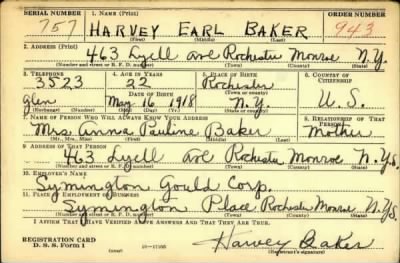 SERIAL NUMBER 1. NAME (Print) ORDER NUMBER
757 HARVEY EARL BAKER 943
(First) (Middle) (Last)
2. ADDRESS (Print)
463 Lyell Ave Rochester Monroe N.Y.
(Number and street or R. F. D. number) (Town) (County) (State)
3. TELEPHONE 4. AGE IN YEARS 5. PLACE OF BIRTH 6. COUNTRY OF CITIZENSHIP
3523 22 Rochester
DATE OF BIRTH (Town or county)
Glen May 16 1918 N.Y. U.S.
(Exchange) (Number) (Mo.) (Day) (Yr.) (State or country)
7. NAME OF PERSON WHO WILL ALWAYS KNOW YOUR ADDRESS 8. RELATIONSHIP OF THAT PERSON
Mrs. Anna Pauline Baker Mother
(Mr., Mrs., Miss) (First) (Middle) (Last)
9. ADDRESS OF THAT PERSON
463 Lyell Ave Rochester Monroe N.Ys.
(Number and street or R. F. D. number) (Town) (County) (State)
10. EMPLOYER'S NAME
Symington Gould Corp.
11. PLACE OF EMPLOYMENT OR BUSINESS
Symington Place Rochester Monroe N.Ys.
(Number and street or R. F. D. number) (Town) (County) (State)
I AFFIRM THAT I HAVE VERIFIED ABOVE ANSWERS AND THAT THEY ARE TRUE.
REGISTRATION CARD
D. S. S. Form 1 (over) Harvey Baker
(Registrant's signature)